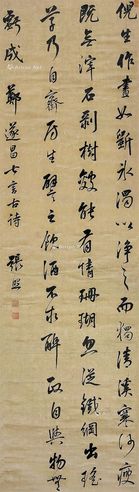 倪生作畫如斲冰濁以淨之而獨清溪寒沙瘦
既無滓石剥樹皴能有情珊瑚忽從鐵網出瑤
草乃自齋房生譬之飲酒不求醉政自與物無
虧成 鄭遂昌七言古詩 張照